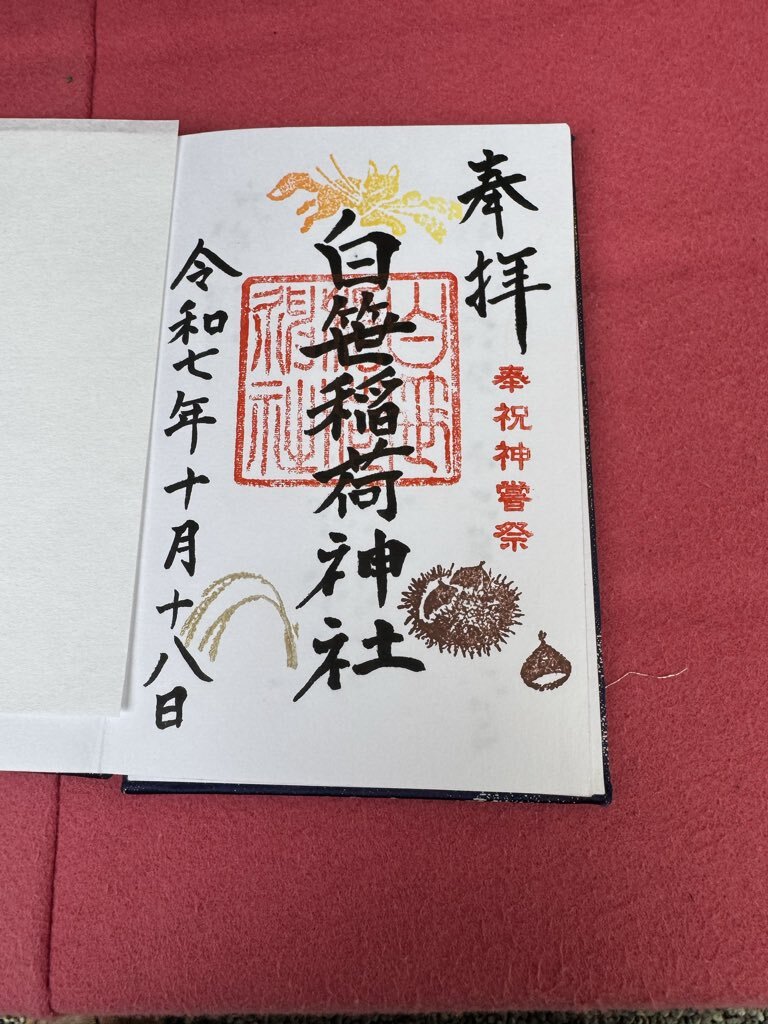 奉拝
奉祝神嘗祭
白笹稲荷神社
白笹稲荷神社
令和七年十月十八日